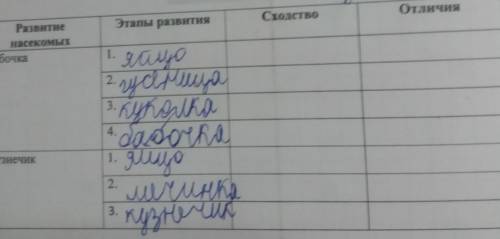 Развитие насекомых Этапы развития Сходство Отличия
бочка 1. яйцо
2. гусеница
3. куколка
4. бабочка
знечик 1. яйцо
2. личинка
3. кузнечик